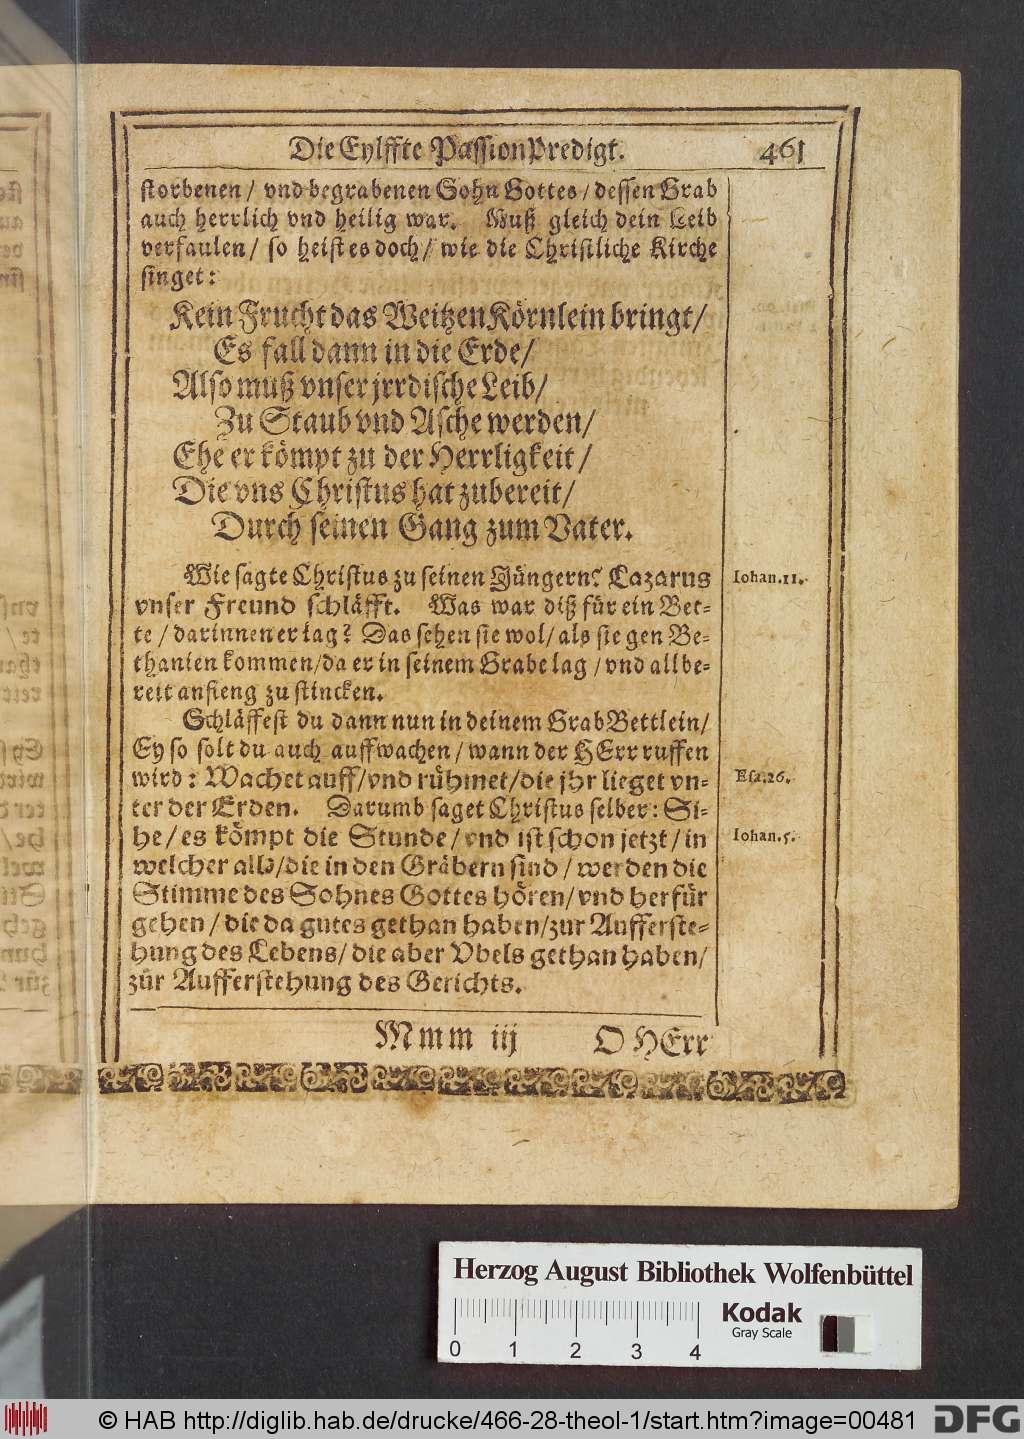 Die Eylffte PassionPredigt. 461
storbenen / vnd begrabenen Sohn Gottes / dessen Grab
auch herrlich vnd heilig war. Muß gleich dein Leib
verfaulen / so heist es doch / wie die Christliche Kirche
singet:
Kein Frucht das Weitzen Körnlein bringt /
Es fall dann in die Erde /
Also muß vnser jrrdische Leib /
Zu Staub vnd Asche werden /
Ehe er kömpt zu der Herrligkeit /
Die vns Christus hat zubereit /
Durch seinen Gang zum Vater.
Wie sagte Christus zu seinen Jüngern? Lazarus
Iohan. 11.
vnser Freund schläfft. Was war diß für ein Bet-
te / darinnen er lag? Das sehen sie wol / als sie gen Be-
thanien kommen / da er in seinem Grabe lag / vnd allbe-
reit anfieng zu stincken.
Schläffest du dann nun in deinem Grab Bettlein /
Ey so solt du auch auffwachen / wann der HErr ruffen
wird: Wachet auff / vnd rühmet / die jhr lieget vn-
Esa. 26.
ter der Erden. Darumb saget Christus selber: Si-
he / es kömpt die Stunde / vnd ist schon jetzt / in
Iohan. 5.
welcher alle / die in den Gräbern sind / werden die
Stimme des Sohnes Gottes hören / vnd herfür
gehen / die da gutes gethan haben / zur Aufferste-
hung des Lebens / die aber Vbels gethan haben /
zur Aufferstehung des Gerichts.
Mmm iij O HErr
Herzog August Bibliothek Wolfenbüttel
0 1 2 3 4
Kodak
Gray Scale
© HAB http://diglib.hab.de/drucke/466-28-theol-1/start.htm?image=00481
DFG